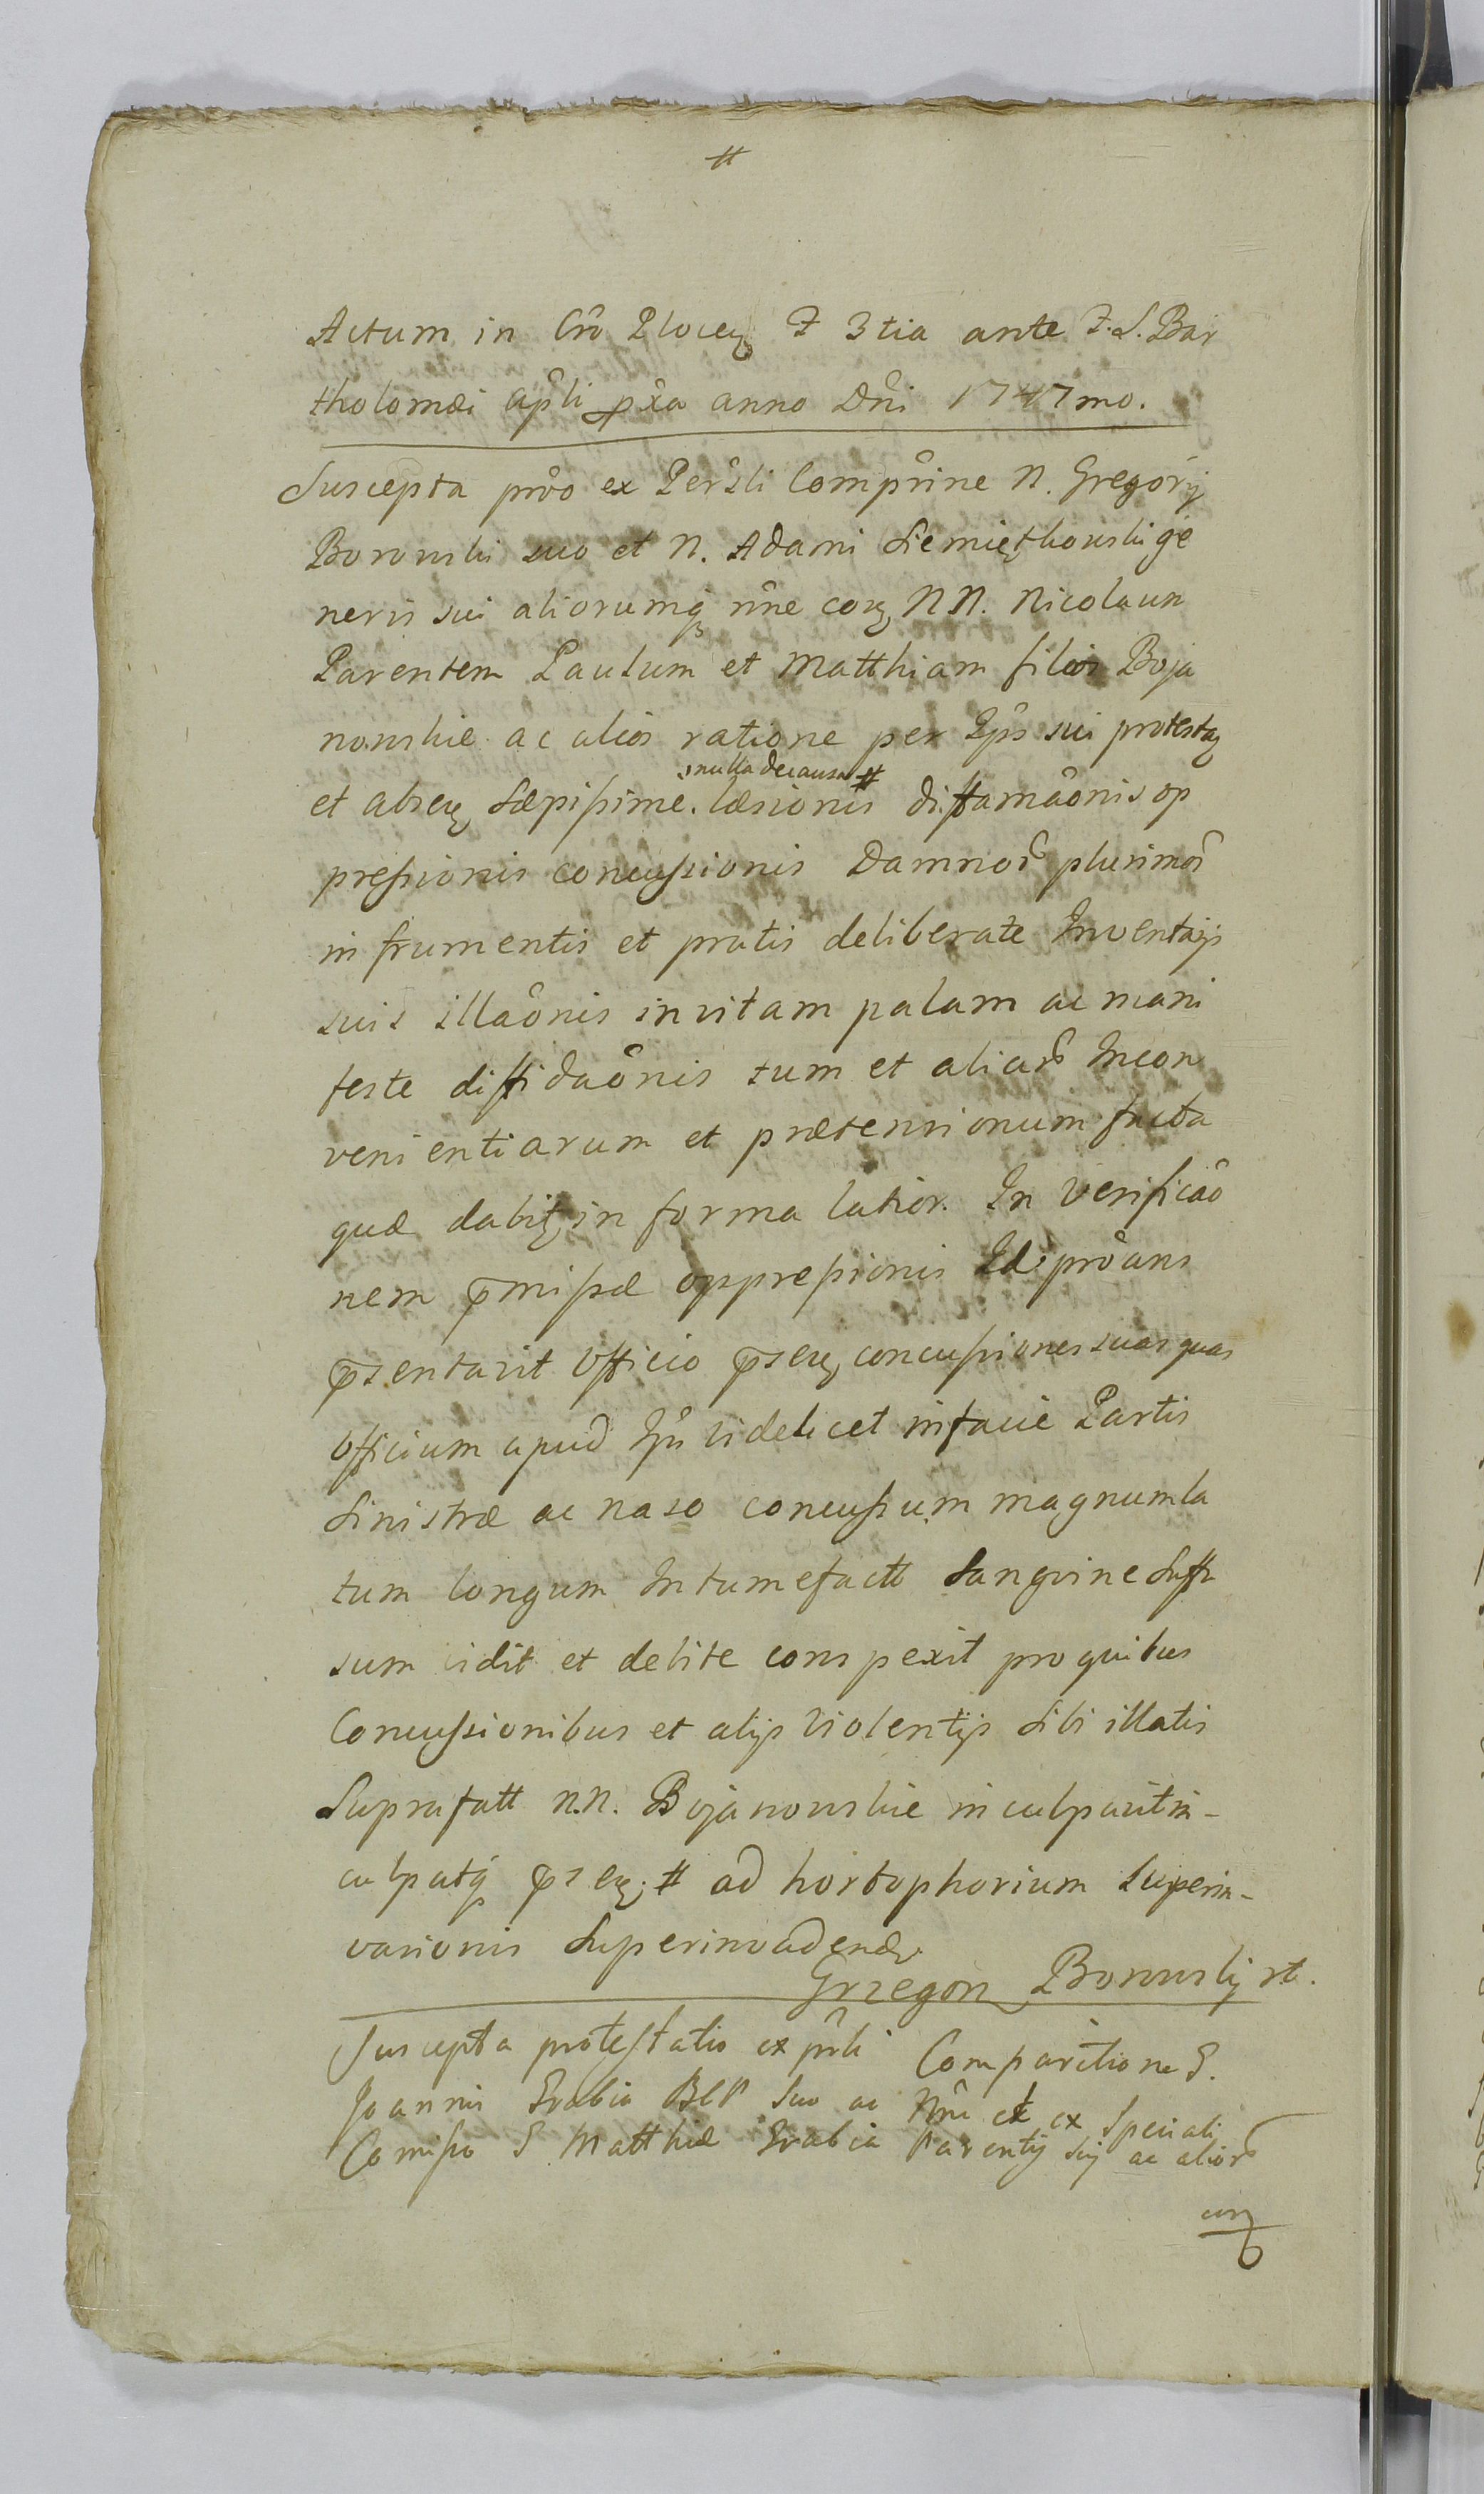 #
Actum in Crô Plocen F 3tia ante F. S. Bar
tholomæi apłi pxa anno Dñi 1747mo.
Suscepta prôo ex Persłi Comprîne N. Gregorij
Borowski suo et N. Adami Siemiętkowski ge
neris sui aliorumq nîne cora NN. Nicolaum
Parentem Paulum et Matthiam filios Boja
nowskie ac alios ratione per Ips sui protestan
nulla de causa #
et absen sæpissime læsionis diffamaônis op
pressionis concussionis Damnor plurimor
in frumentis et pratis deliberate Inventarijs
suis illaônis in vitam palam ac mani
feste diffidaônis tum et aliar Incon
venientiarum et prætensionum facta
quæ dabit in forma latior. In Verificaô
nem pmissæ oppressionis Id prôans
psentavit Officio psen concussiones suas quas
Officium apud Ips videlicet in facie Partis
Sinistræ ac naso concussum magnum la
tum longum Intumefactt Sanguine Suffu
sum vidit et debite conspexit pro quibus
Concussionibus et alijs Violentijs Sibi illatis
Suprafatt N.N. Bojanowskie inculpavit in-
culpatq psen # ad hortophorium Superin-
vasionis Superinvadend
Grzegorz Borowskij st.
Suscepta protestatio ex prsłi Comparitione G.
Joannis Grabia BCP Suo ac Nne et ex Speciali
Comisso G Matthiæ Grabia Parentij Sui ac alior
cora